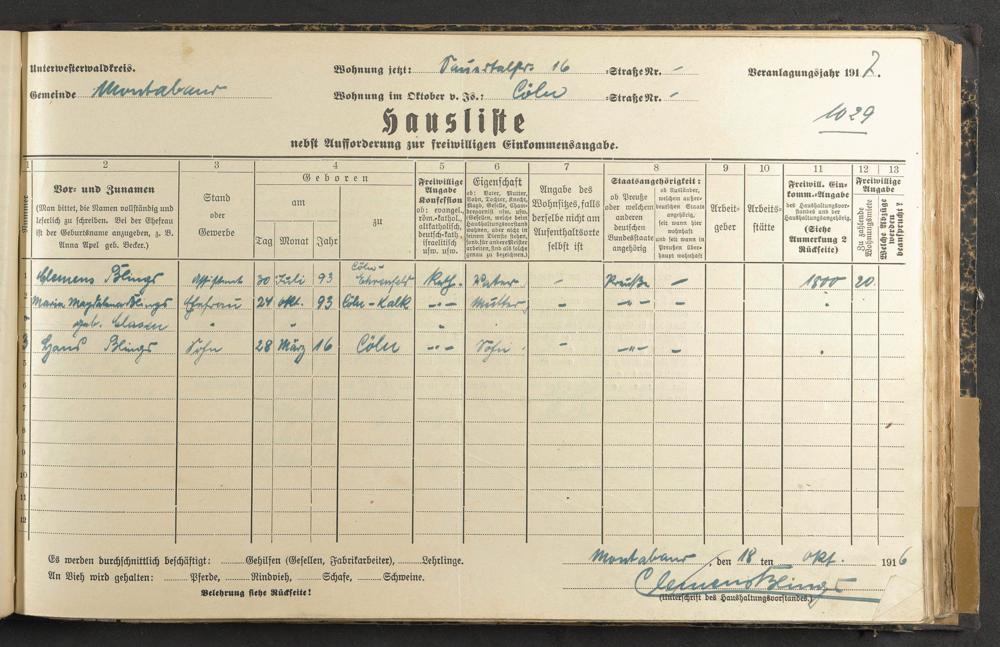 Unterwesterwaldkreis.
Wohnung jetzt: Sauertalstr. 16 =Straße Nr. -
Veranlagungsjahr 1917.
Gemeinde Montabaur
Wohnung im Oktober v. Js.: Cöln =Straße Nr. -
1029
Hausliste
nebst Aufforderung zur freiwilligen Einkommensangabe.
1 2 3 4 5 6 7 8 9 10 11 12 13
Nummer
Vor- und Zunamen
(Man bittet, die Namen vollständig und
leserlich zu schreiben. Bei der Ehefrau
ist der Geburtsname anzugeben, z. B.
Anna Apel geb. Becker.)
Stand
oder
Gewerbe
Geboren
am
Tag Monat Jahr
zu
Freiwillige
Angabe
Konfession
ob: evangel.,
röm.-kathol.,
altkatholisch,
deutsch-kath.,
israelitisch
usw. usw.
Eigenschaft
ob: Vater, Mutter,
Sohn, Tochter, Knecht,
Magd, Geselle, Cham-
bregarnist usw. usw.
(Gesellen, welche beim
Haushaltungsvorstand
wohnen, aber nicht in
seinem Dienste stehen,
sond. für andere Meister
arbeiten, sind als solche
genau zu bezeichnen.)
Angabe des
Wohnsitzes, falls
derselbe nicht am
Aufenthaltsorte
selbst ist
Staatsangehörigkeit:
ob Preuße
oder welchem
anderen
deutschen
Bundesstaate
angehörig
ob Ausländer,
welchem außer-
deutschen Staat
angehörig,
seit wann hier
wohnhaft
und seit wann in
Preußen über-
haupt wohnhaft
Arbeit-
geber
Arbeits-
stätte
Freiwill. Ein-
komm.-Angabe
des Haushaltungsvor-
standes und der
Haushaltungsangehörig.
(Siehe
Anmerkung 2
Rückseite)
Freiwillige
Angabe
Zu zahlende
Wohnungsmiete
Welche Abzüge
werden
beansprucht?
1 Clemens Blings Assistent 30 Juli 93 Cöln-Ehrenfeld Kath. Vater - Preuße - 1800 20
2 Maria Magdalena Blings Ehefrau 24 Okt. 93 Cöln-Kalk -"- Mutter - -"- -
geb. Clasen " " "
3 Hans Blings Sohn 28 März 16 Cöln -"- Sohn - -"- -
5
6
7
8
9
10
11
12
Es werden durchschnittlich beschäftigt: Gehilfen (Gesellen, Fabrikarbeiter), Lehrlinge.
An Vieh wird gehalten: Pferde, Rindvieh, Schafe, Schweine.
Belehrung siehe Rückseite!
Montabaur, den 18 ten Okt. 1916
Clemens Blings
(Unterschrift des Haushaltungsvorstandes.)